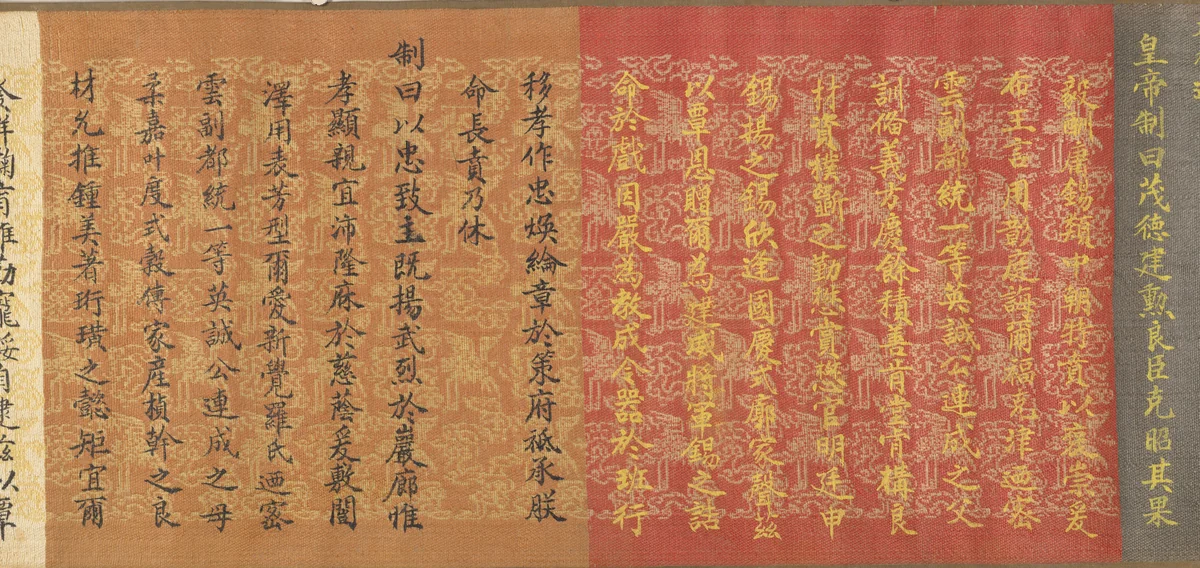 皇帝制曰茂德建勲良臣克昭其果
毅酬庸錫類中朝特賁以襃崇爰
布王言用彰庭誨爾福克津迺密
雲副都統一等英誠公連成之父
訓脩義方慶餘積善肯堂肯構良
材資樸斲之勤懋賞懋官明廷申
錫揚之錫欣逢國慶式廓家聲茲
以覃恩贈爾為建威將軍錫之誥
命於戲因嚴為教成令器於班行
移孝作忠煥綸章於策府祗承朕
命長賁乃休
制曰以忠致主既揚武烈於巖廊惟
孝顯親宜沛隆庥於慈蔭爰敷閫
澤用表芳型爾愛新覺羅氏迺密
雲副都統一等英誠公連成之母
柔嘉叶度式穀傳家產楨幹之良
材允推鍾美著珩璜之懿矩宜爾
祥鞠育維勤寵綏自逮茲以覃